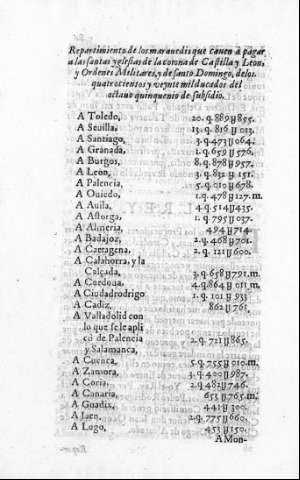 Repartimiento de los marauedis que cauen à pagar
a las santas yglesias de la corona de Castilla y Leon,
y Ordenes Militares, y de santo Domingo, de los
quatrocientos y veynte mil ducados del
octauo quinquenio de subsidio.
A Toledo, 20.q.889y895.
A Seuilla, 13.q.816y013.
A Santiago, 3.q.473y064.
A Granada, 1.q.659y576.
A Burgos, 8.q.878y957.
A Leon, 3.q.832y151.
A Palencia, 5.q.010y678.
A Ouiedo, 1.q.478y127.m.
A Auila, 4.q.514y435.
A Astorga, 1.q.795y037.
A Almeria, 494y714.
A Badajoz, 2.q.468y701.
A Cartagena, 2.q.121y600.
A Calahorra, y la
Calçada, 3.q.658y791.m.
A Cordoua, 4.q.864y011.m.
A Ciudadrodrigo 1.q.101y933
A Cadiz, 862y761.
A Valladolid con
lo que se le apli
cò de Palencia
y Salamanca, 2.q.721y865.
A Cuenca, 5.q.755y010.m.
A Zamora, 3.q.400y987.
A Coria, 2.q.482y746.
A Canaria, 653y765.m.
A Guadix, 441y300.
A Iaen, 2.q.775y660.
A Lugo, 453y150.
A Mon-